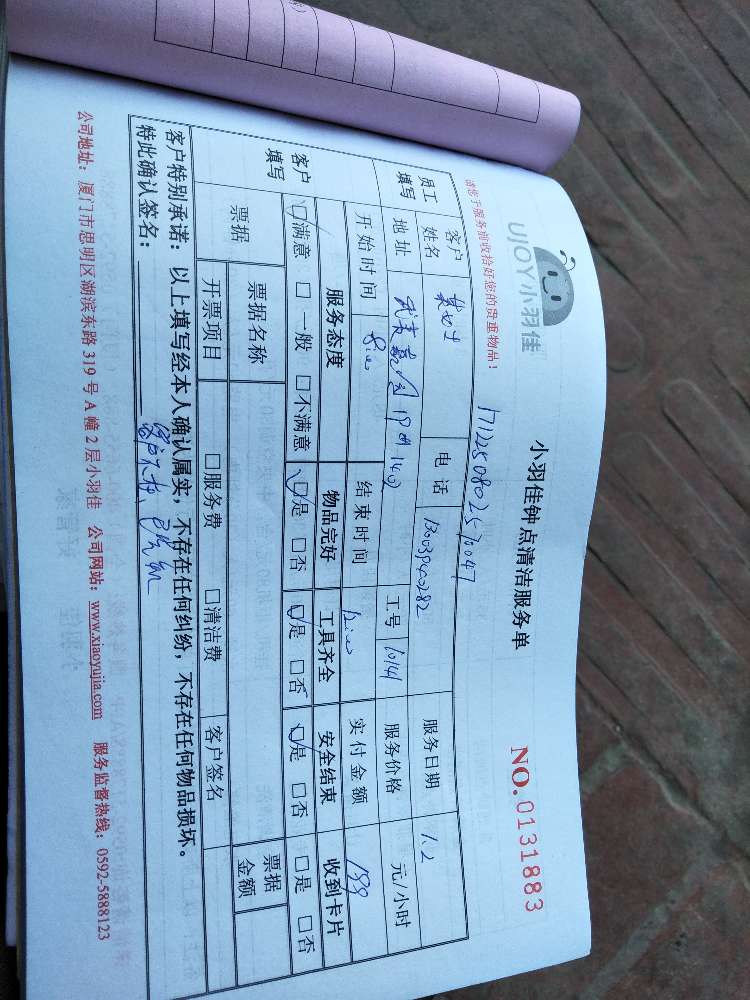 UJOY小羽佳
小羽佳钟点清洁服务单
NO.0131883
请您于服务前收拾好您的贵重物品！
1712250802570047
员工填写 客户姓名 电话 服务日期 1.2
地址 19 1402 工号 10141 服务价格 元/小时
开始时间 8:00 结束时间 12:00 实付金额 199
客户填写 服务态度 物品完好 工具齐全 安全结束 收到卡片
☑满意 □一般 □不满意 ☑是 □否 ☑是 □否 ☑是 □否 □是 □否
票据 票据名称 票据金额
开票项目 □服务费 □清洁费 客户签名
客户特别承诺：以上填写经本人确认属实，不存在任何纠纷，不存在任何物品损坏。
特此确认签名：客户不在，已电
公司地址：厦门市思明区湖滨东路319号A幢2层小羽佳 公司网站：www.xiaoyujia.com 服务监督热线：0592-5888123